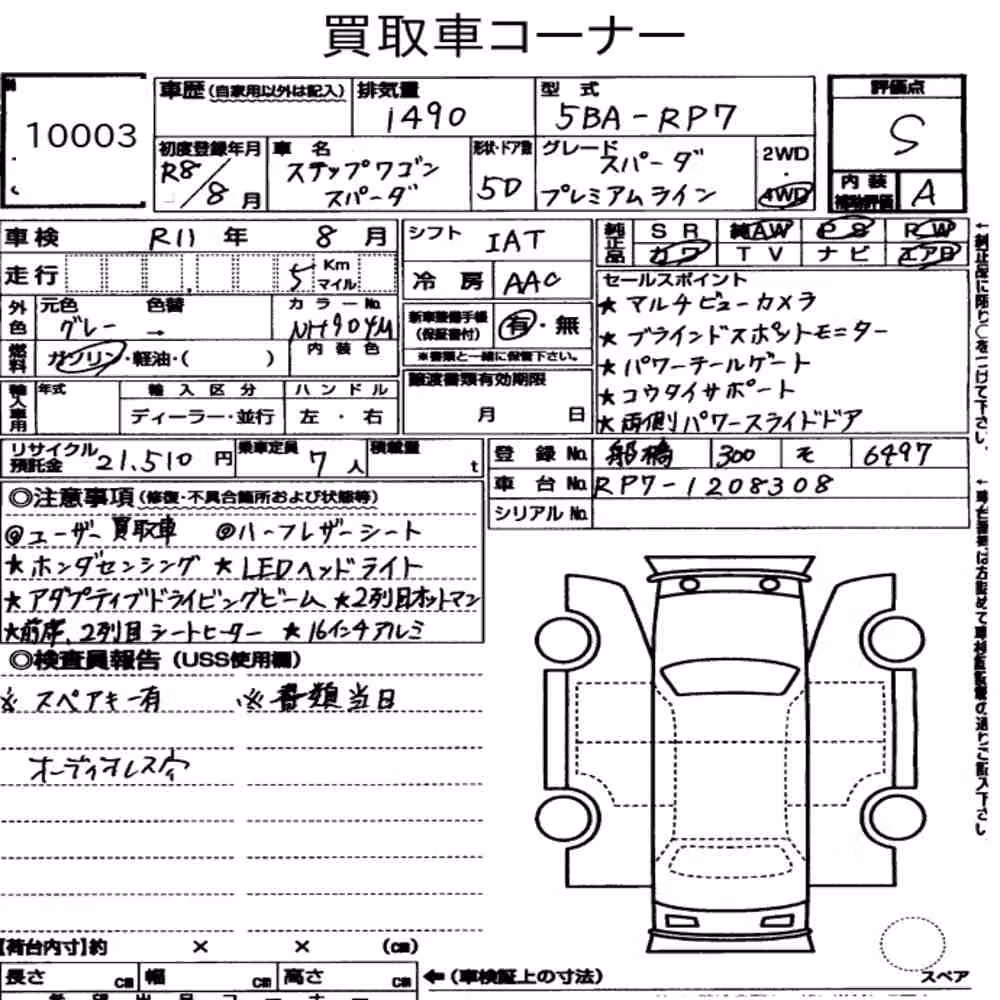 買取車コーナー
10003
車歴(自家用以外は記入)
排気量
1490
型式
5BA-RP7
評価点
S
初度登録年月
R8/8月
車名
ステップワゴン
スパーダ
形状・ドア数
5D
グレード
スパーダ
プレミアムライン
2WD
・
4WD
内装
補助評価
A
車検 R11年 8月
シフト IAT
純正品
SR 純AW PS PW
カワ TV ナビ エアB
走行 5 Km マイル
冷房 AAC
セールスポイント
★マルチビューカメラ
★ブラインドスポットモニター
★パワーテールゲート
★コウタイサポート
★両側パワースライドドア
外色
元色 色替
グレー →
カラーNo.
NH904M
新車整備手帳
(保証書付)
有・無
※書類と一緒に保管下さい。
燃料
ガソリン・軽油・( )
内装色
輸入車用
年式
輸入区分
ディーラー・並行
ハンドル
左・右
譲渡書類有効期限
月 日
リサイクル
預託金
21,510円
乗車定員
7人
積載量
t
登録No. 船橋 300 モ 6497
車台No. RP7-1208308
シリアルNo.
◎注意事項(修復・不具合箇所および状態等)
◎ユーザー買取車 ◎ハーフレザーシート
★ホンダセンシング ★LEDヘッドライト
★アダプティブドライビングビーム ★2列目オットマン
★前席、2列目シートヒーター ★16インチアルミ
◎検査員報告(USS使用欄)
※スペアキー有 ※書類当日
オーディオレス
【荷台内寸】約 × × (cm)
長さ cm 幅 cm 高さ cm
←(車検証上の寸法)
スペア